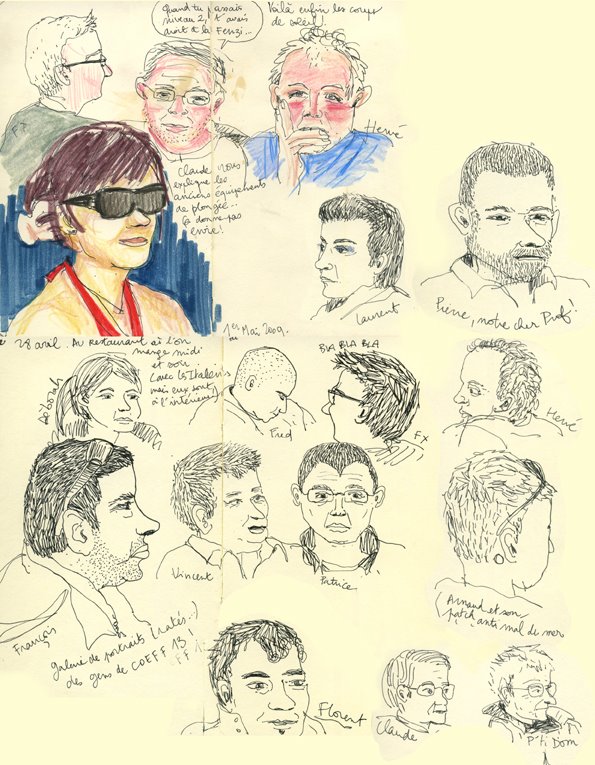 Quand tu passais
niveau 2, t'avais
droit à la Fenzi...
Voilà enfin les coups
de soleil!
FX
Hervé
Claude nous
explique les
anciens équipements
de plongée...
ça donne pas
envie!
Laurent
Pierre, notre cher Prof!
28 avril. Au restaurant où l'on
mange midi
et soir.
(avec les Italiens
mais eux sont
à l'intérieur)
1er Mai 2009.
Déborah
Fred
BLA BLA BLA
FX
Hervé
François
Vincent
Patrice
Arnaud et son
patch anti mal de mer
galerie de portraits (ratés..)
des gens de COEFF 13!
Florent
Claude
P'ti Dom